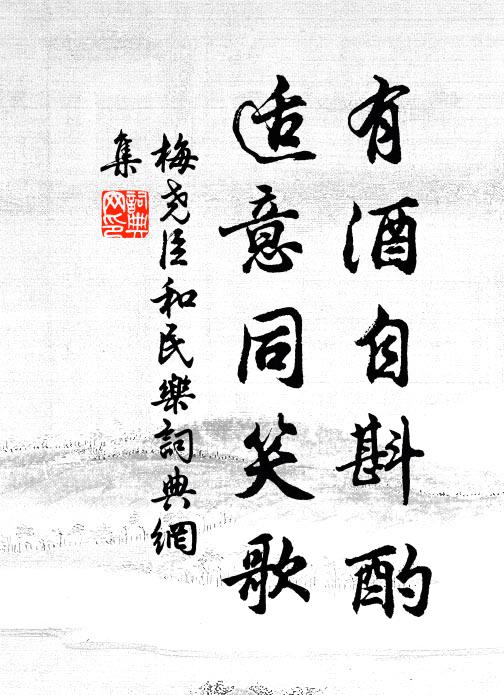 有酒自斟酌
适意同笑歌
梅尧臣和民樂詞典網
集
詞典
网印